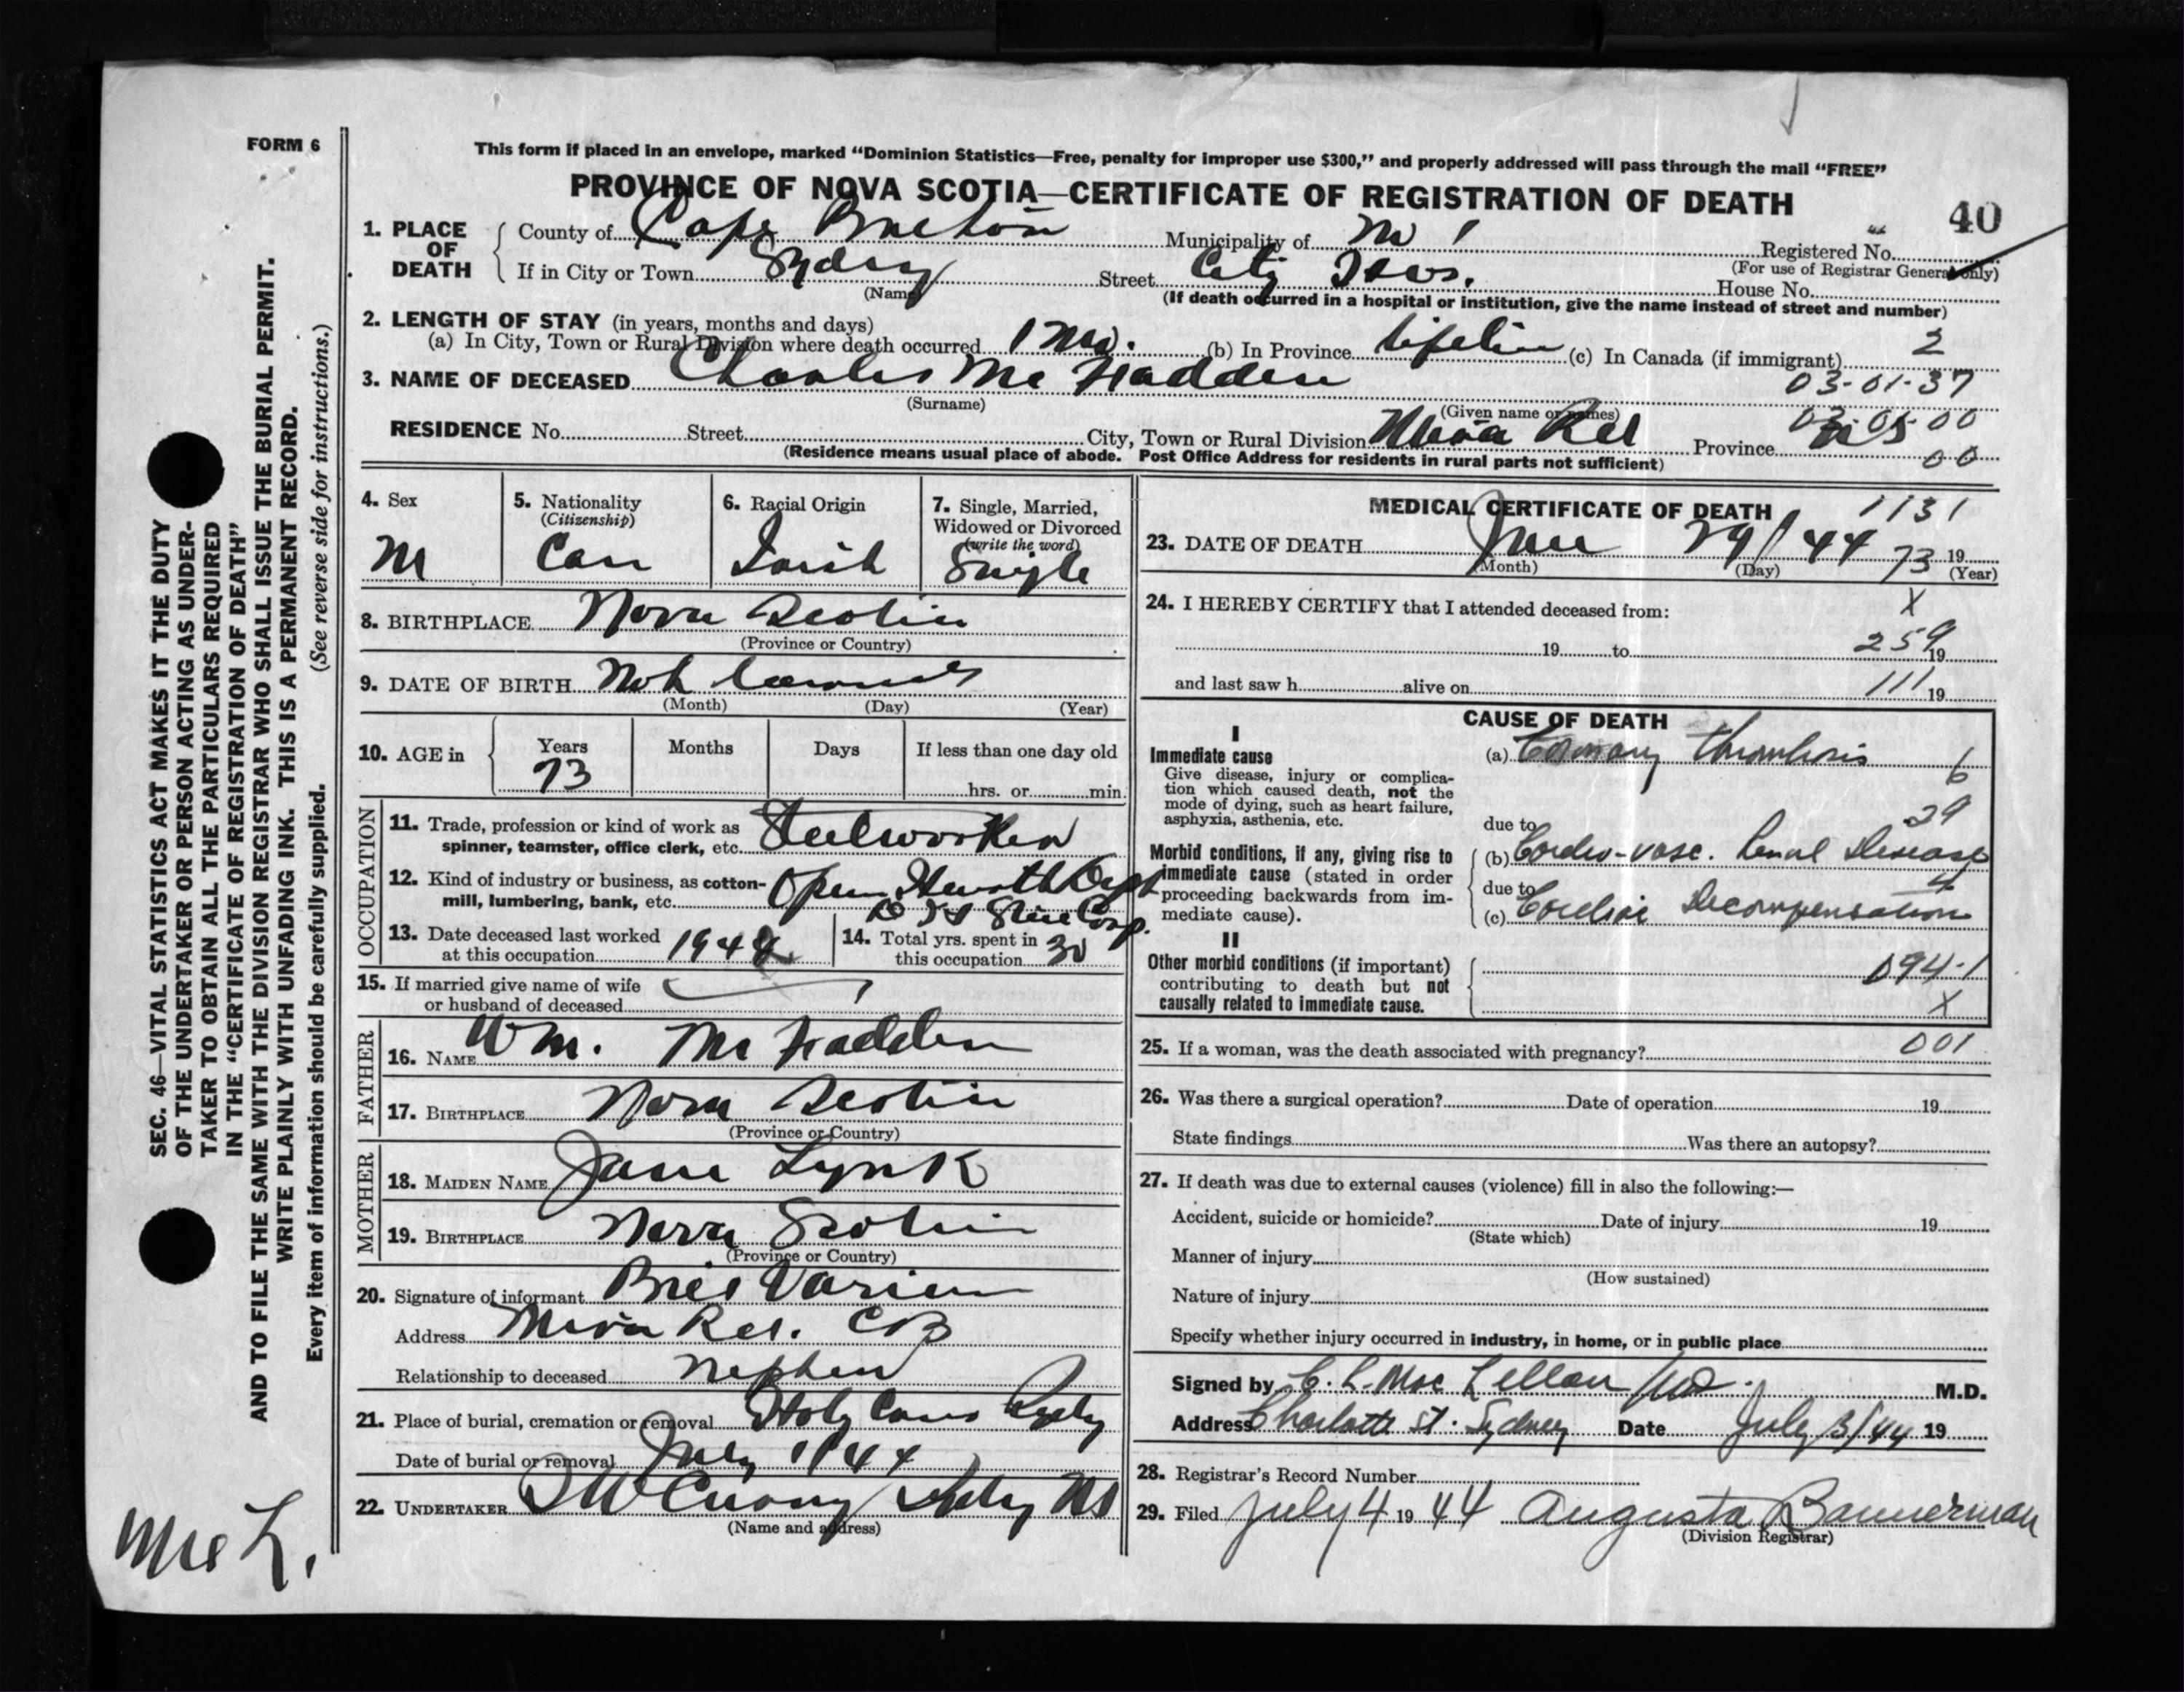 FORM 6
This form if placed in an envelope, marked “Dominion Statistics—Free, penalty for improper use $300,” and properly addressed will pass through the mail “FREE”
PROVINCE OF NOVA SCOTIA—CERTIFICATE OF REGISTRATION OF DEATH
40
1. PLACE OF DEATH
County of Cape Breton Municipality of Registered No.
(For use of Registrar General only)
If in City or Town Sydney Street City Hos. House No.
(Name) (If death occurred in a hospital or institution, give the name instead of street and number)
2. LENGTH OF STAY (in years, months and days)
(a) In City, Town or Rural Division where death occurred 1 Mo. (b) In Province Lifetime (c) In Canada (if immigrant) 2
3. NAME OF DECEASED Charles Mc Fadden 03-01-37
(Surname) (Given name or names)
03-05-00
RESIDENCE No. Street City, Town or Rural Division Mira Rd Province N S
00
(Residence means usual place of abode. Post Office Address for residents in rural parts not sufficient)
4. Sex M
5. Nationality (Citizenship) Can
6. Racial Origin Irish
7. Single, Married, Widowed or Divorced (write the word) Single
8. BIRTHPLACE Nova Scotia
(Province or Country)
9. DATE OF BIRTH Not
(Month) (Day) (Year)
10. AGE in Years 73 Months Days If less than one day old
hrs. or min.
OCCUPATION
11. Trade, profession or kind of work as spinner, teamster, office clerk, etc. Steelworker
12. Kind of industry or business, as cotton-mill, lumbering, bank, etc. Open Hearth Dept
D I S Steel Corp.
13. Date deceased last worked at this occupation 1944
14. Total yrs. spent in this occupation 30
15. If married give name of wife or husband of deceased
FATHER
16. NAME Wm. Mc Fadden
17. BIRTHPLACE Nova Scotia
(Province or Country)
MOTHER
18. MAIDEN NAME Jane Lynk
19. BIRTHPLACE Nova Scotia
(Province or Country)
20. Signature of informant Varien
Address Mira Rd. CB
Relationship to deceased Nephew
21. Place of burial, cremation or removal Holy Cross Sydney
Date of burial or removal July 1/44
22. UNDERTAKER Sydney NS
(Name and address)
MEDICAL CERTIFICATE OF DEATH 1131
23. DATE OF DEATH June 29/44 73 19
(Month) (Day) (Year)
24. I HEREBY CERTIFY that I attended deceased from: X
19 to 259 19
and last saw h alive on 111 19
CAUSE OF DEATH
I
Immediate cause
Give disease, injury or complication which caused death, not the mode of dying, such as heart failure, asphyxia, asthenia, etc.
(a) Coronary thrombosis 6
29
due to
Morbid conditions, if any, giving rise to immediate cause (stated in order proceeding backwards from immediate cause).
(b) Cardio-vasc. Renal Disease
due to 4
(c) Cardiac Decompensation
II
Other morbid conditions (if important) contributing to death but not causally related to immediate cause.
094.1
X
25. If a woman, was the death associated with pregnancy? 001
26. Was there a surgical operation? Date of operation 19
State findings Was there an autopsy?
27. If death was due to external causes (violence) fill in also the following:—
Accident, suicide or homicide? Date of injury 19
(State which)
Manner of injury
(How sustained)
Nature of injury
Specify whether injury occurred in industry, in home, or in public place
Signed by C. L. Mac Lellan MD. M.D.
Address Charlotte St. Sydney Date July 3/44 19
28. Registrar's Record Number
29. Filed July 4 19 44 Augusta Bannerman
(Division Registrar)
SEC. 46—VITAL STATISTICS ACT MAKES IT THE DUTY
OF THE UNDERTAKER OR PERSON ACTING AS UNDER-
TAKER TO OBTAIN ALL THE PARTICULARS REQUIRED
IN THE “CERTIFICATE OF REGISTRATION OF DEATH”
AND TO FILE THE SAME WITH THE DIVISION REGISTRAR WHO SHALL ISSUE THE BURIAL PERMIT.
WRITE PLAINLY WITH UNFADING INK. THIS IS A PERMANENT RECORD.
Every item of information should be carefully supplied. (See reverse side for instructions.)